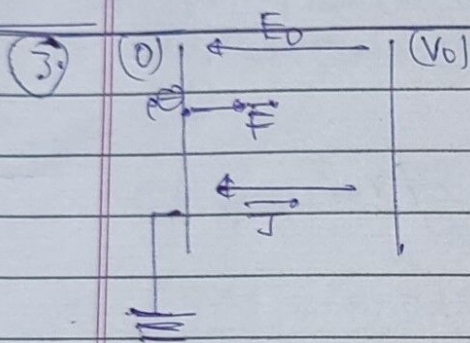 3. (0) E₀ (V₀)
e⊖ F
J